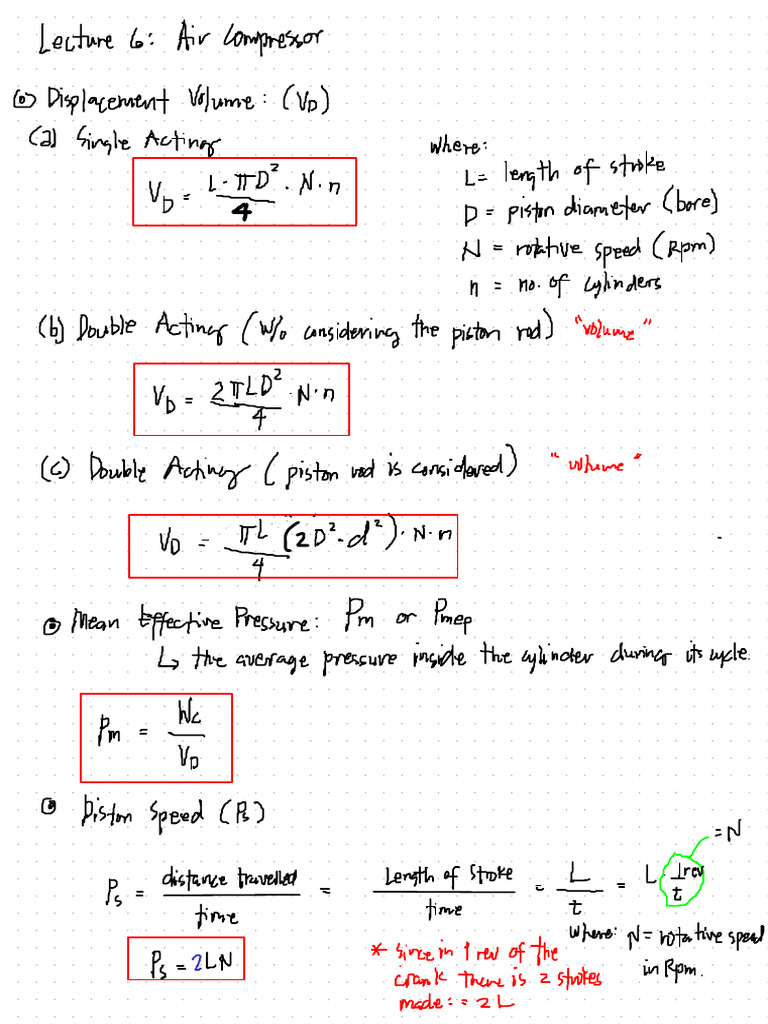 Lecture 6: Air Compressor
Displacement Volume: (V_D)
(a) Single Acting
V_D = L·πD²/4 · N·n
where:
L = length of stroke
D = piston diameter (bore)
N = rotative speed (Rpm)
n = no. of cylinders
(b) Double Acting (w/o considering the piston rod) "volume"
V_D = 2πLD²/4 · N·n
(c) Double Acting (piston rod is considered) "volume"
V_D = πL/4 (2D²-d²)·N·n
Mean Effective Pressure: Pm or Pmep
↳ the average pressure inside the cylinder during its cycle.
Pm = Wc/V_D
Piston Speed (Ps)
= N
Ps = distance travelled/time = Length of Stroke/time = L/t = L · 1rev/t
where: N = rotative speed
in Rpm.
Ps = 2LN
* since in 1 rev of the
crank there is 2 strokes
made: = 2L